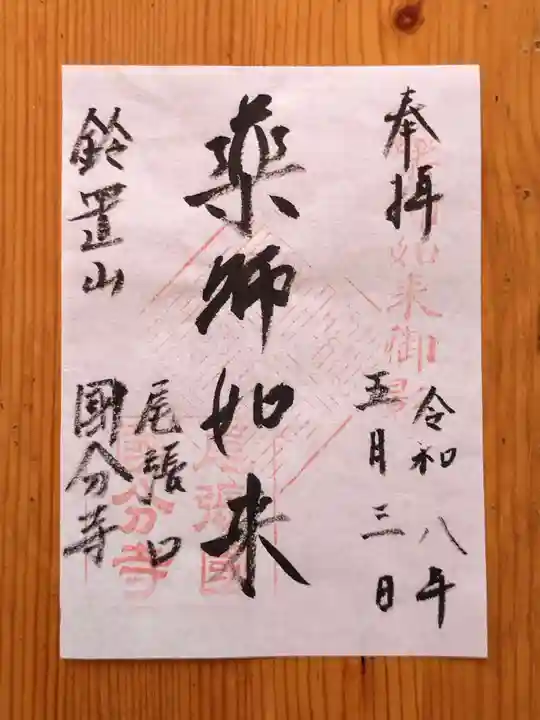 奉拝
令和八年
五月三日
薬師如来
尾張
國分寺
鈴置山
如来御
尾張國
國分寺